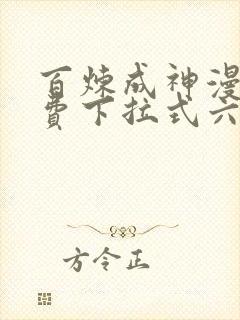 百炼成神漫
费下拉式六
方令正